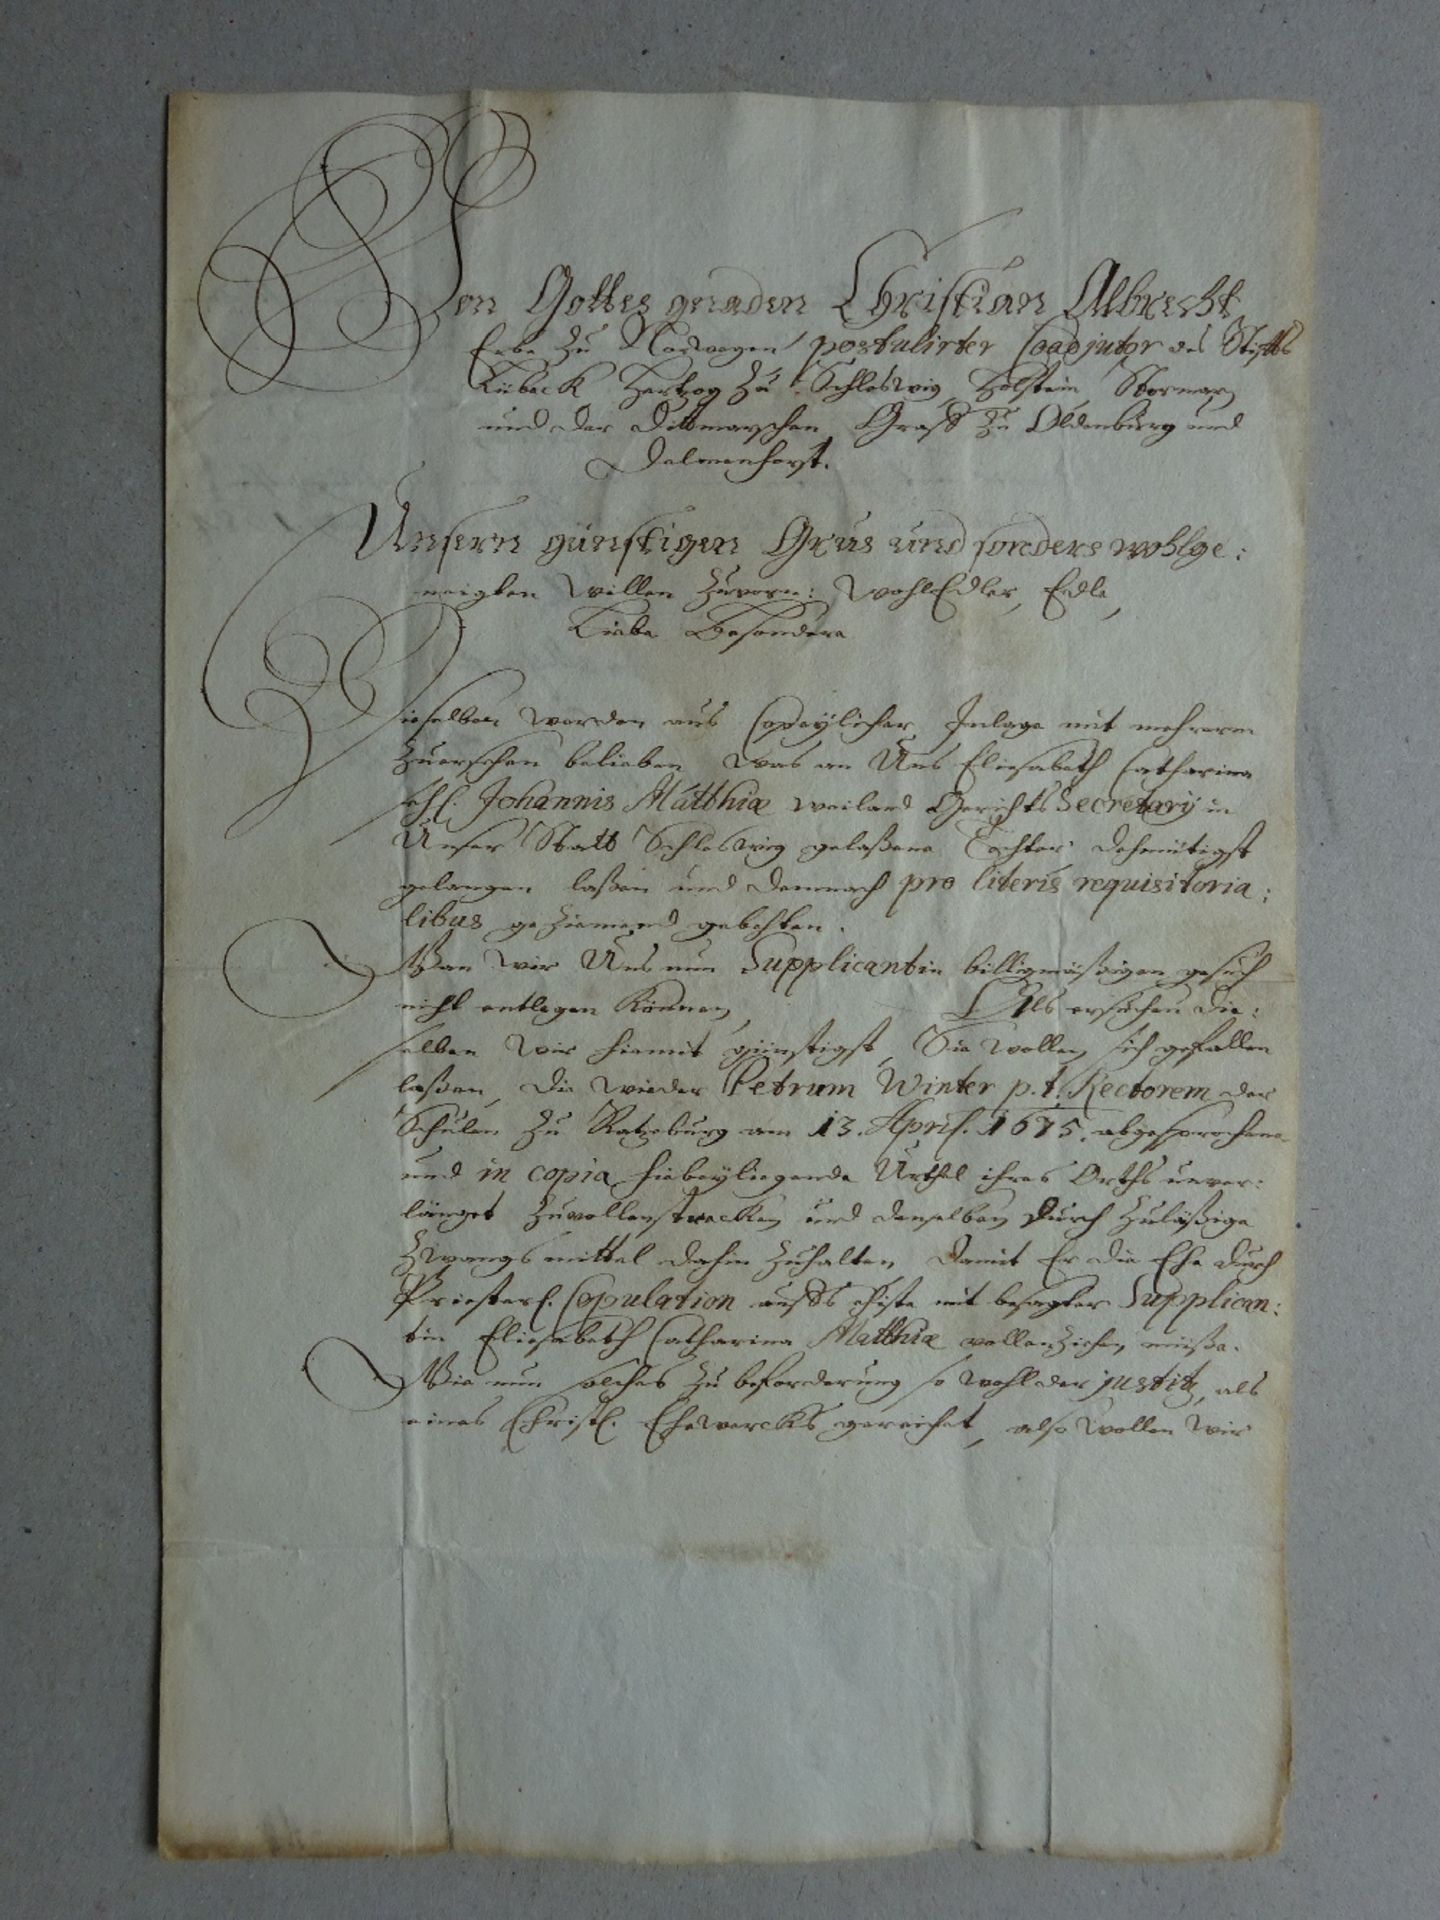 Von Gottes genaden Christian Albrecht,
Erbe zu Norwegen postulirter Coadjutor des Stiffts
Lübeck Hertzog zu Schleswig, Holstein, Stormarn
und der Dittmarschen, Graff zu Oldenburg und
Delmenhorst.
Unsern günstigen Grus und sonders wohlge:
neigten Willen zuvorn: WohlEdler, Edle,
Liebe Besondere
Dieselben werden aus Copeylicher Inlage mit mehrerm
zuersehen belieben, was an Uns Eliesabeth Catharina
sehl. Johannis Matthiæ weiland Gerichts Secretarij in
Unser Statt Schleswig gelaßene Tochter demütigst
gelangen laßen und demnach pro literis requisitoria:
libus geziemend gebehten.
Wan wir Uns nun Supplicantin billigmäßigen gesuch
nicht entlegen können, Als ersuchen die:
selben wir hiemit günstigst, Sie wollen sich gefallen
laßen, die wieder Petrum Winter p. t. Rectorem der
Schulen zu Ratzeburg am 13. April. 1675. abgesprochene
und in copia hiebeyliegende Urthel ihres Orths unver:
länget zuvollenstrecken und denselben durch zuläßige
Zwangsmittel dahin zuhalten, damit Er die Ehe durch
Priesterl. Copulation auffs ehiste mit besagter Supplican:
tin Eliesabeth Catharina Matthiæ vollenziehen müße.
Wie nun solches zu beforderung so wohl der justitz, als
eines Christl. Ehewercks gereichet, also wollen wir